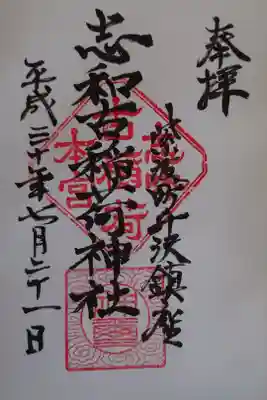 奉拝
紫波郡升沢鎮座
志和古稲荷神社
平成三十年七月二十一日
志和
古稲荷
本宮